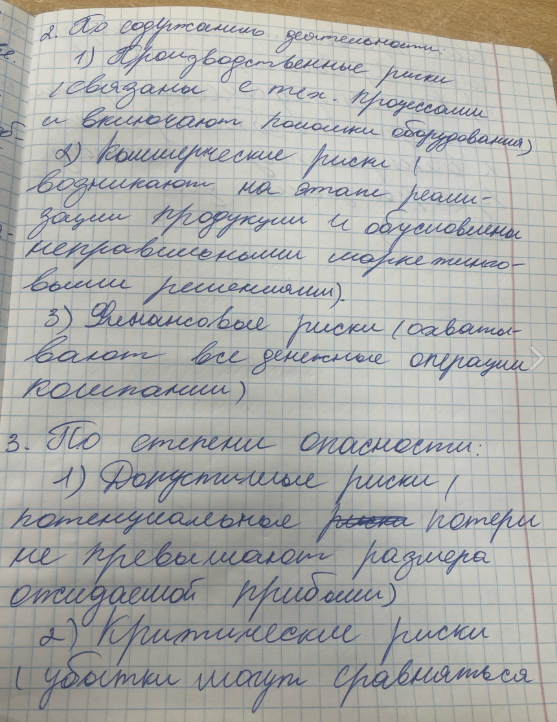 2. По содержанию деятельности:
1) Производственные риски
(связаны с тех. процессами
и включают поломки оборудования)
2) Коммерческие риски (
возникают на этапе реали-
зации продукции и обусловлены
неправильными маркетинго-
выми решениями).
3) Финансовые риски (охваты-
вают все денежные операции
компании)
3. По степени опасности:
1) Допустимые риски (
потенциальные потери
не превышают размера
ожидаемой прибыли)
2) Критические риски
(убытки могут сравняться